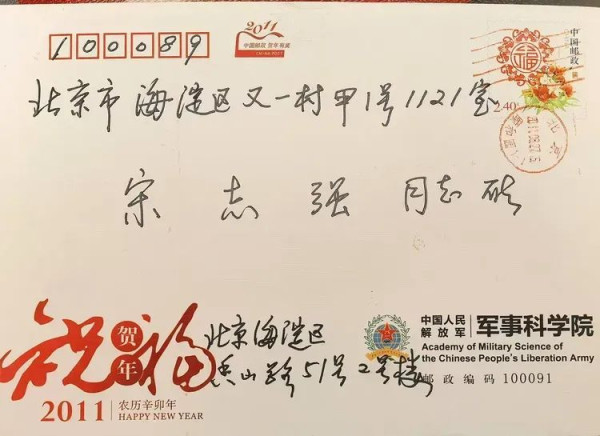 100089
2011
中国邮政 贺年有奖
中国邮政
2.40
北京
北京市海淀区又一村甲1号1121室
宋志强 同志收
祝福
贺年
2011 农历辛卯年
HAPPY NEW YEAR
北京海淀区
香山路51号2号楼
中国人民解放军 军事科学院
Academy of Military Science of
the Chinese People's Liberation Army
邮政编码 100091